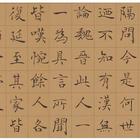 隔問今是何世
迺不知有漢無
論魏晉此人一
一為具言所聞
皆嘆惋餘人各
復延至其家皆